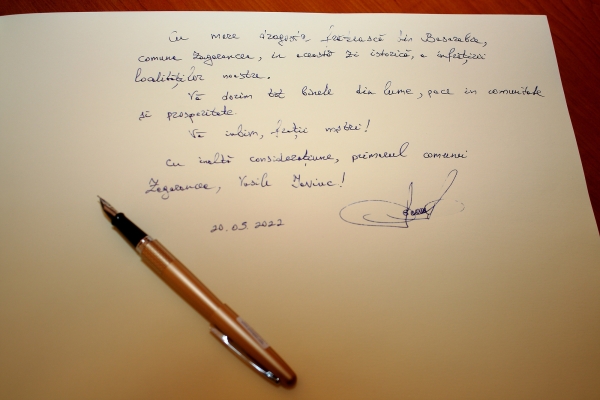 Cu mare dragoste frățească din Basarabia,
comuna Zagarancea, în această zi istorică, a înfrățirii
localităților noastre.
Vă dorim tot binele din lume, pace în comunitate
și prosperitate.
Vă iubim, frații noștri!
Cu înaltă considerațiune, primarul comunei
Zagarancea, Vasile!
20.05.2022